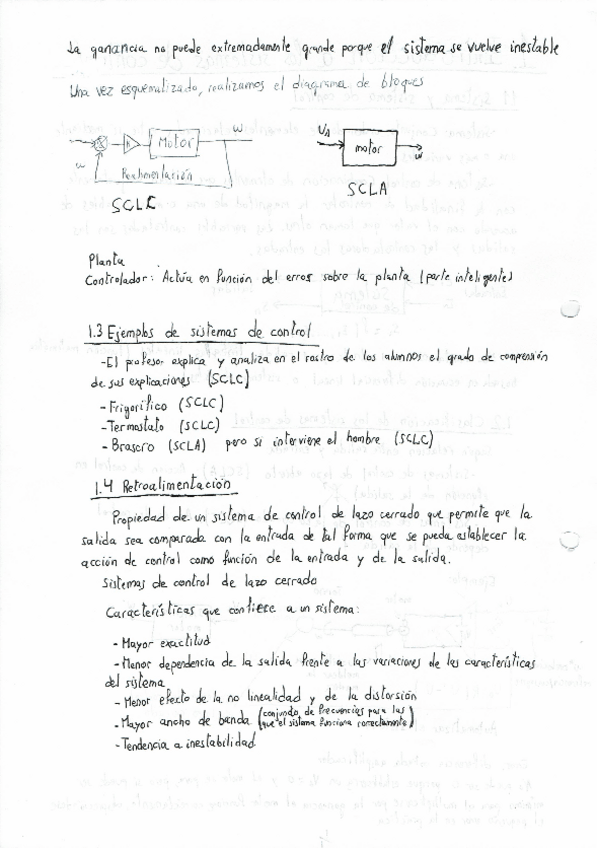 La ganancia no puede extremadamente grande porque el sistema se vuelve inestable
Una vez esquematizado, realizamos el diagrama de bloques
Motor
w
w
Realimentación
SCLC
motor
w
SCLA
Planta
Controlador: Actúa en función del error sobre la planta (parte inteligente)
1.3 Ejemplos de sistemas de control
-El profesor explica y analiza en el rostro de los alumnos el grado de compresión
de sus explicaciones (SCLC)
-Frigorífico (SCLC)
-Termostato (SCLC)
-Brasero (SCLA) pero si interviene el hombre (SCLC)
1.4 Retroalimentación
Propiedad de un sistema de control de lazo cerrado que permite que la
salida sea comparada con la entrada de tal forma que se pueda establecer la
acción de control como función de la entrada y de la salida.
Sistemas de control de lazo cerrado
Características que confiere a un sistema:
-Mayor exactitud
-Menor dependencia de la salida frente a las variaciones de las características
del sistema
-Menor efecto de la no linealidad y de la distorsión
-Mayor ancho de banda (conjunto de frecuencias para las
que el sistema funciona correctamente)
-Tendencia a inestabilidad